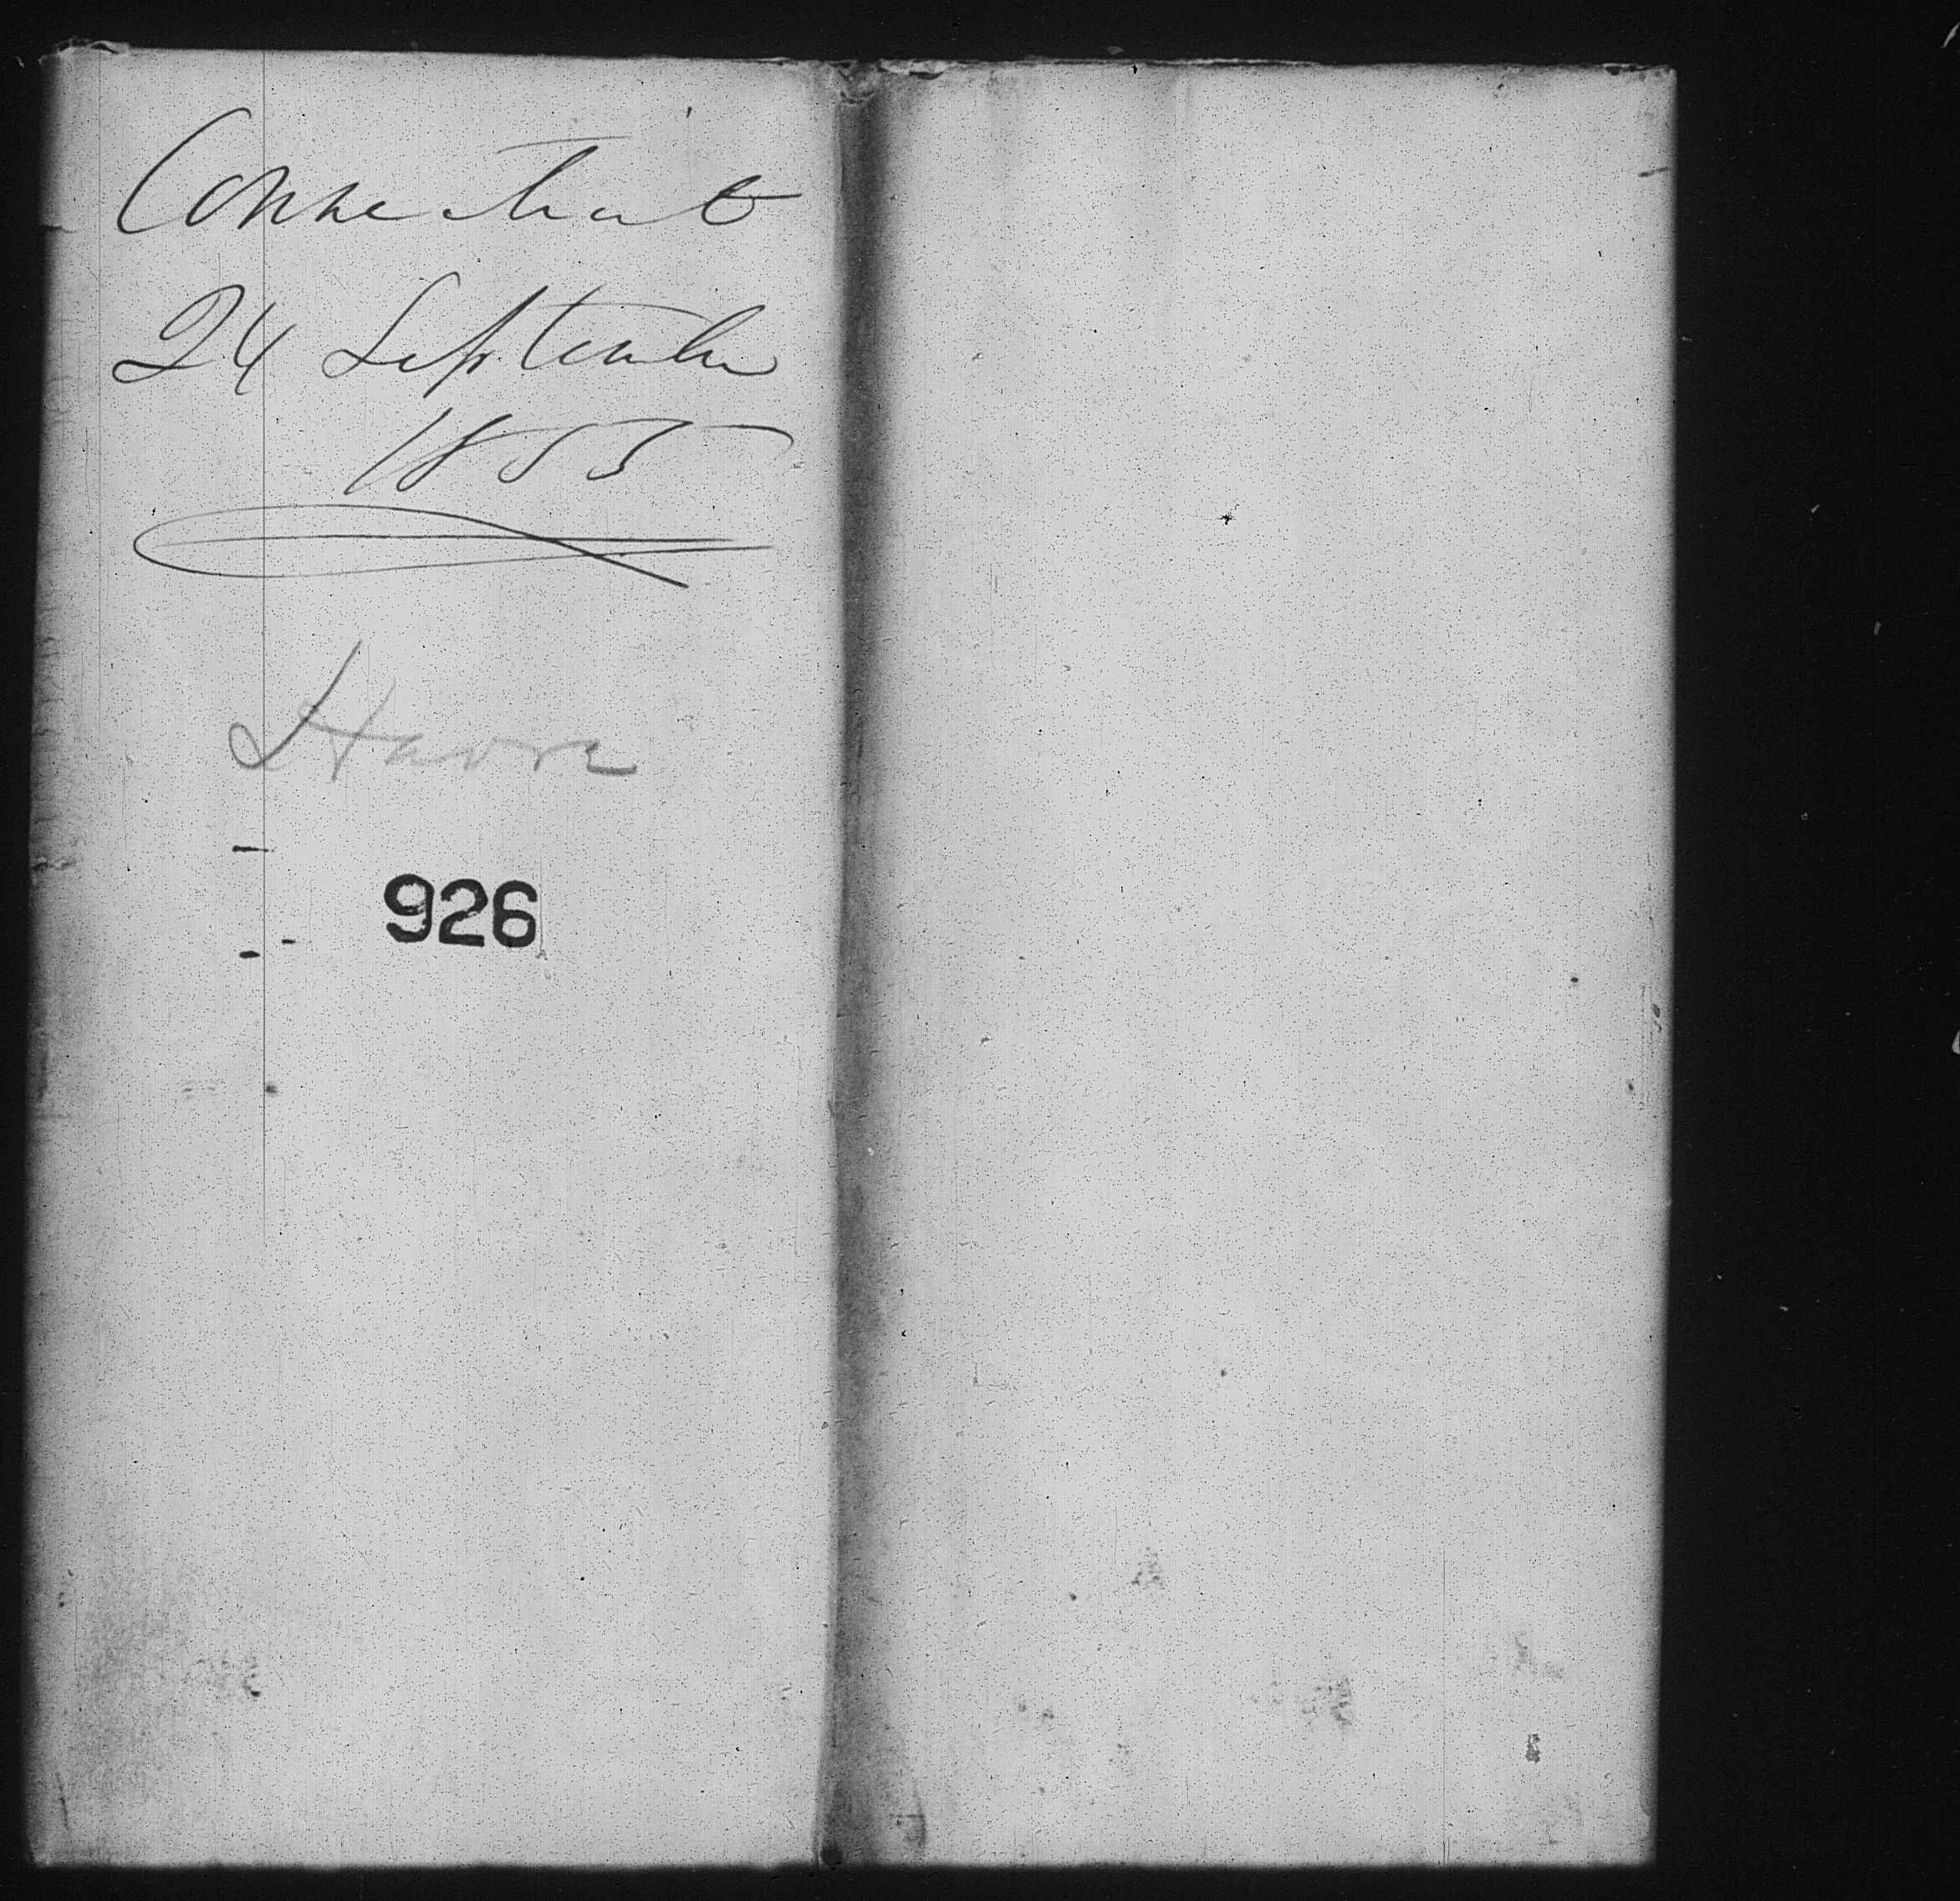 Connecticut
24 September
1855
Havre
926